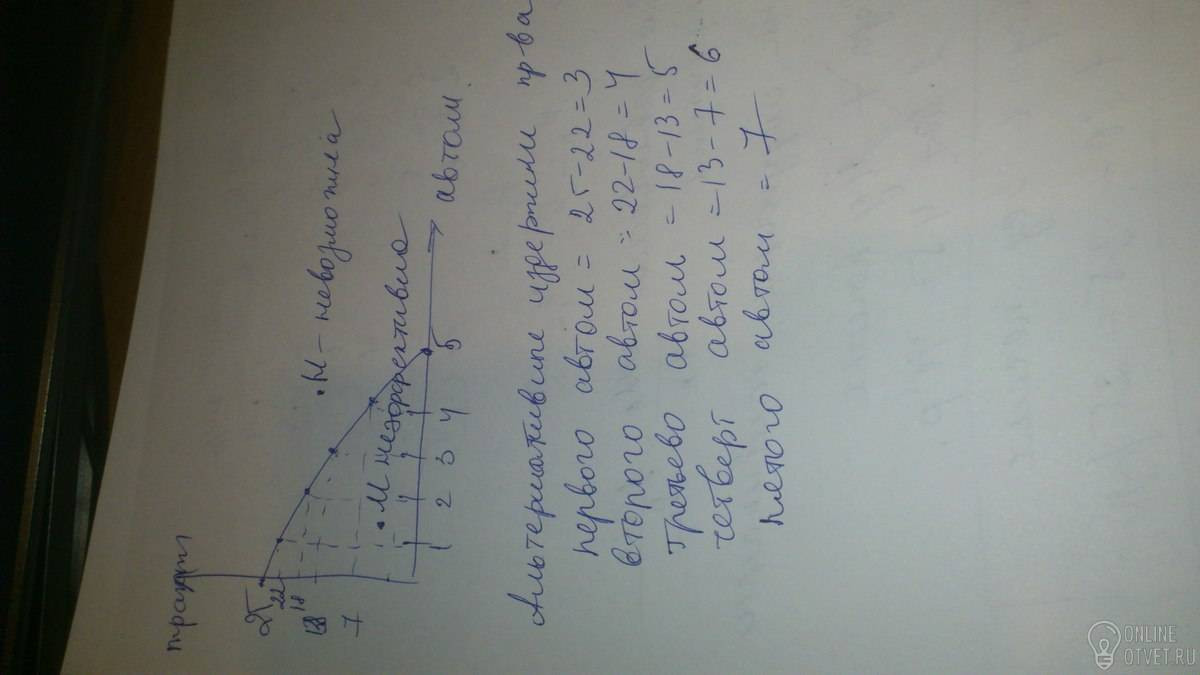 25
22
18
13
7
1 2 3 4 5
автом
• Н - невозможна
• М неэффективно
Альтернативные издержки пр-ва
первого автом = 25-22=3
второго автом = 22-18=4
третьево автом = 18-13=5
четверт автом =13-7=6
пятого автом = 7
ONLINE
OTVET.RU